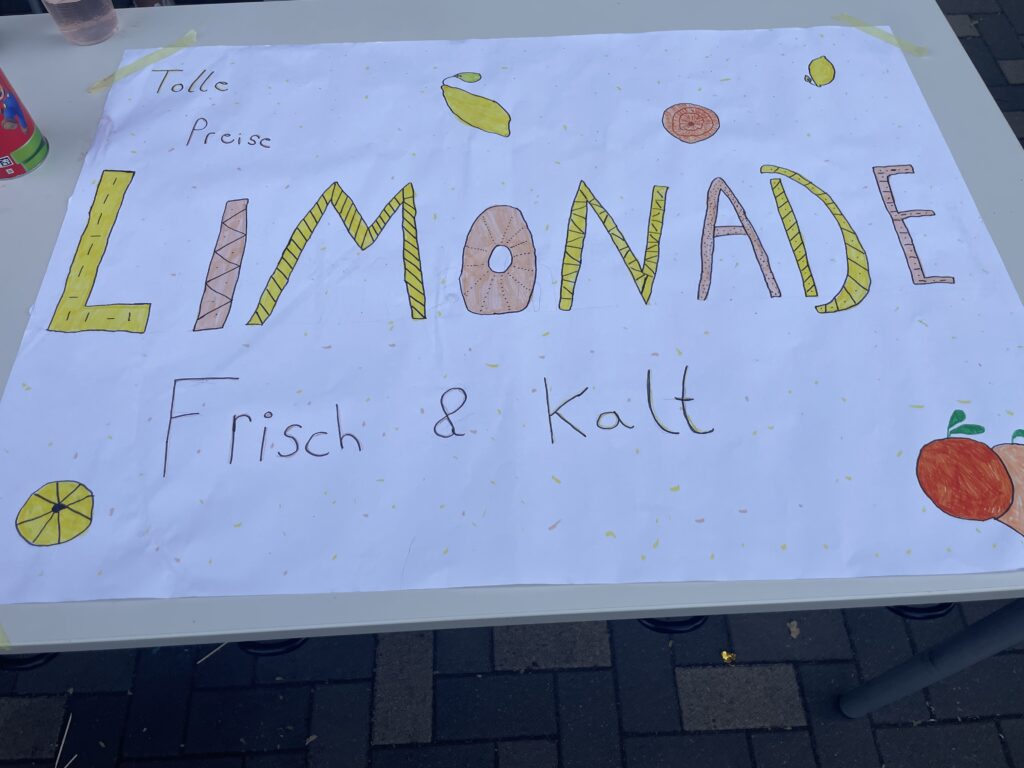 Tolle
Preise
LIMONADE
Frisch & Kalt